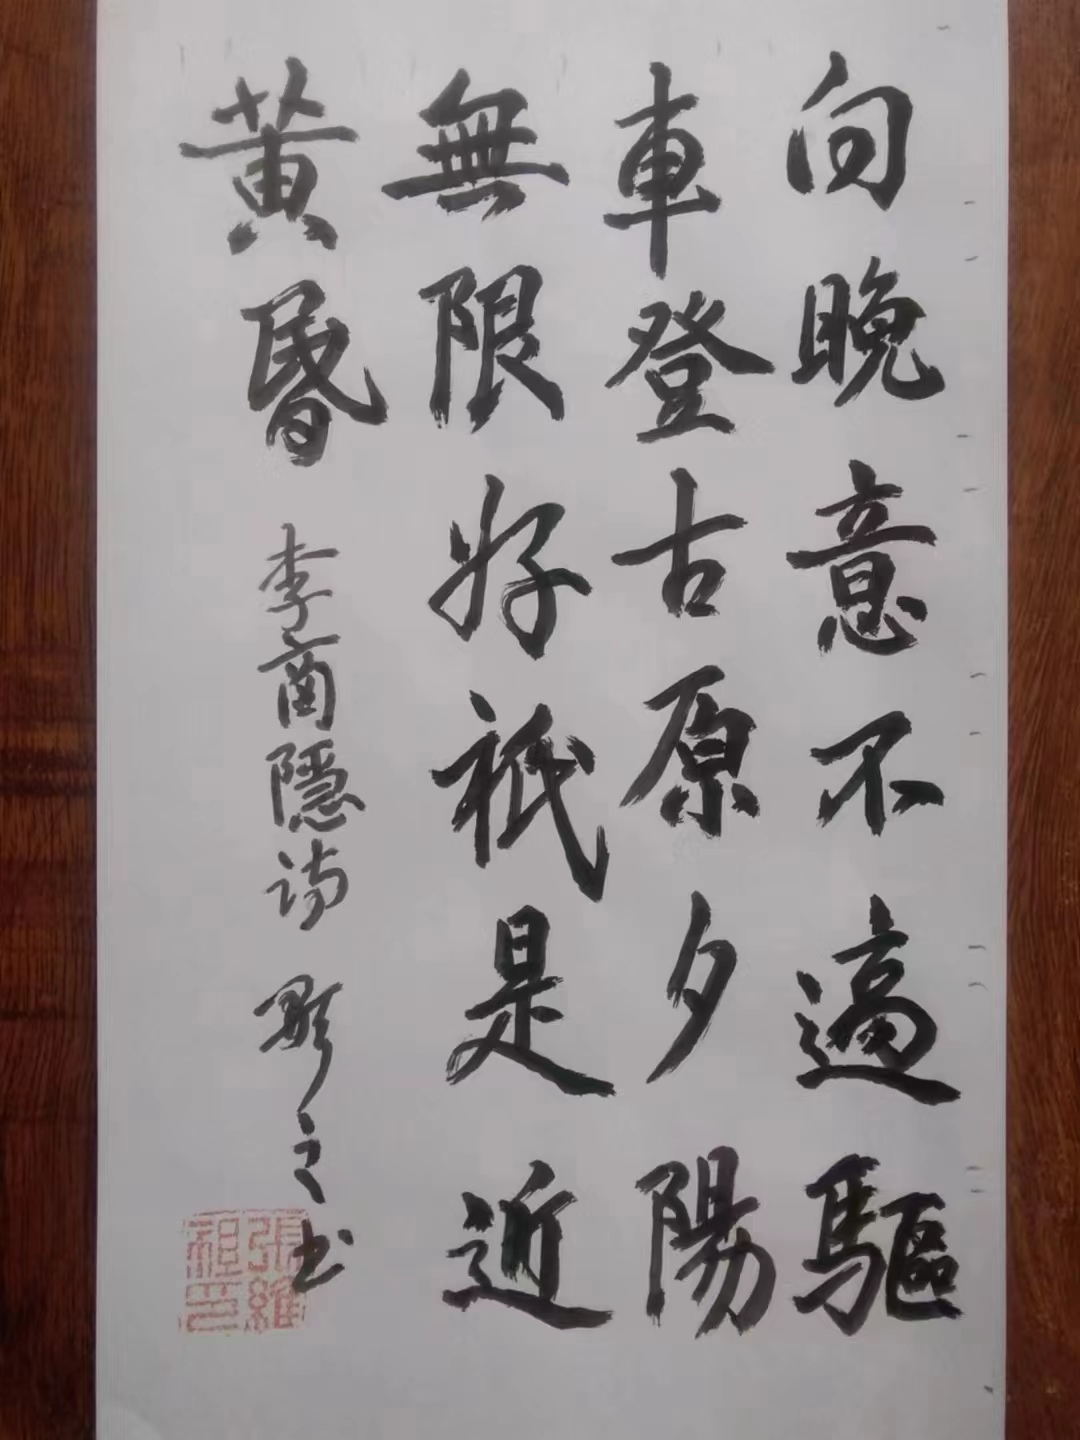 向晚意不適驅
車登古原夕陽
無限好祇是近
黄昏
李商隱诗
之书
張維祖印